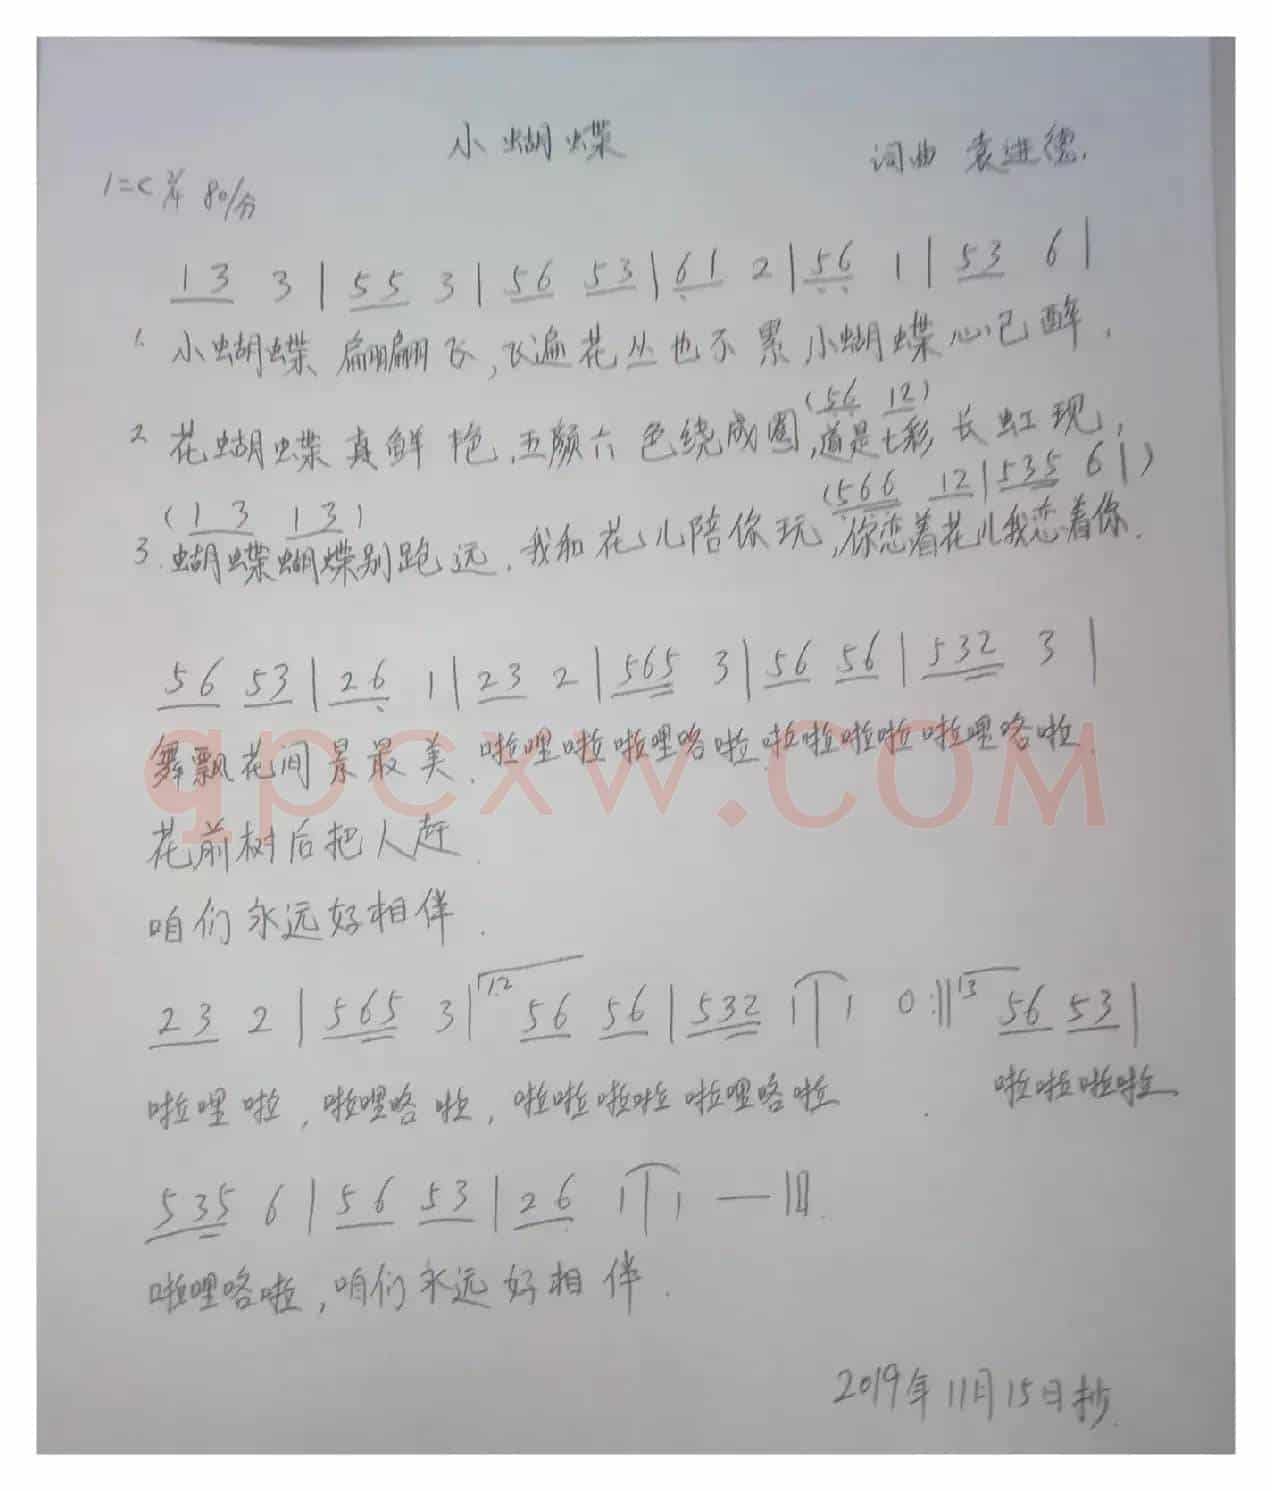 小蝴蝶
词曲 袁进德.
1=C 2/4 80/分
1 3 3 | 5 5 3 | 5 6 5 3 | 6 1 2 | 5 6 1 | 5 3 6 |
1. 小蝴蝶 翩翩飞,飞遍花丛也不累,小蝴蝶心已醉.
(5 6 1 2)
2. 花蝴蝶真鲜艳.五颜六色绕成圈,道是七彩长虹现,
(1 3 1 3) (5 6 6 1 2 | 5 3 5 6 | )
3. 蝴蝶蝴蝶别跑远.我和花儿陪你玩,你恋着花儿我恋着你.
5 6 5 3 | 2 6 1 | 2 3 2 | 5 6 5 3 | 5 6 5 6 | 5 3 2 3 |
舞飘花间景最美.啦哩啦 啦哩咯啦.啦啦啦啦 啦哩咯啦.
花前树后把人赶.
咱们永远好相伴.
2 3 2 | 5 6 5 3 | 1.2 5 6 5 6 | 5 3 2 1 | 1 0 :|| 3 5 6 5 3 |
啦哩啦,啦哩咯啦,啦啦啦啦 啦哩咯啦. 啦啦啦啦
5 3 5 6 | 5 6 5 3 | 2 6 1 | 1 — ||
啦哩咯啦,咱们永远好相伴.
2019年11月15日抄.
qpcxw.COM